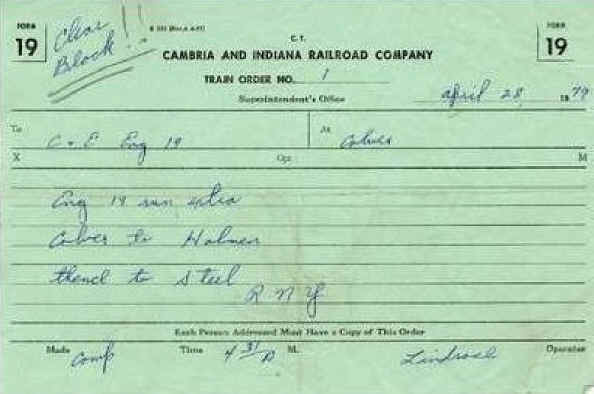 FORM 19
Clear Block!!
C. T.
FORM 19
CAMBRIA AND INDIANA RAILROAD COMPANY
TRAIN ORDER NO. 1
Superintendent's Office April 28, 1979
To C & E Eng 19 At Colver
X Opr. M
Eng 19 run extra
Colver to Holmen
thence to Steel
R N Y
Each Person Addressed Must Have a Copy of This Order
Made Comp Time 4 31 P M. Operator